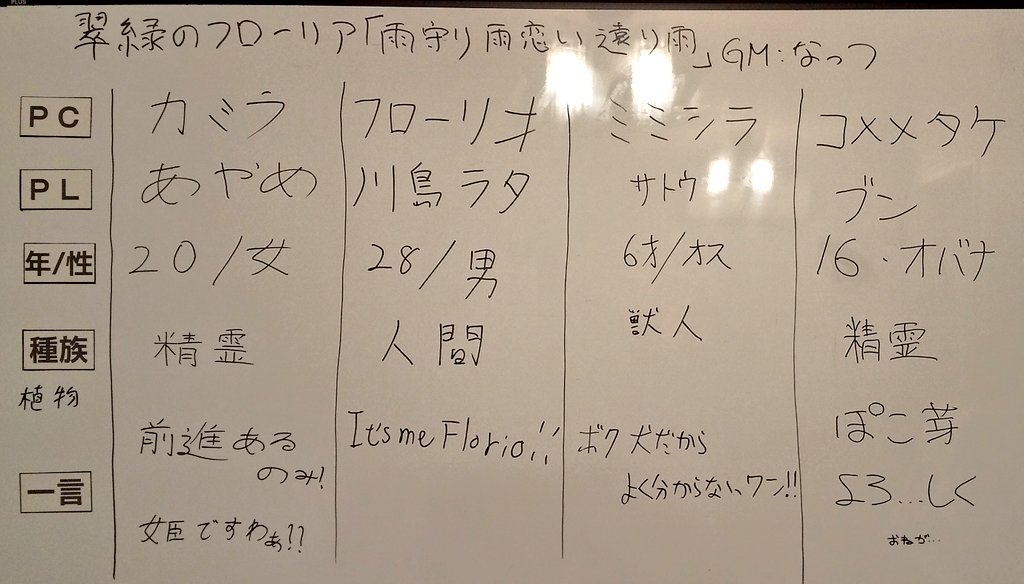 翠緑のフローリア「雨守り雨恋い遠り雨」GM:なっつ
PC カミラ フローリオ ミミシラ コメメタケ
PL あやめ 川島ラタ サトウ ブン
年/性 20/女 28/男 6才/オス 16・オバナ
種族 精霊 人間 獣人 精霊
植物 ぽこ芽
一言 前進あるのみ! It's me Florio!! ボク犬だから よろ...しく
よく分からないワン!!
女臣ですわぁ!! おねが...